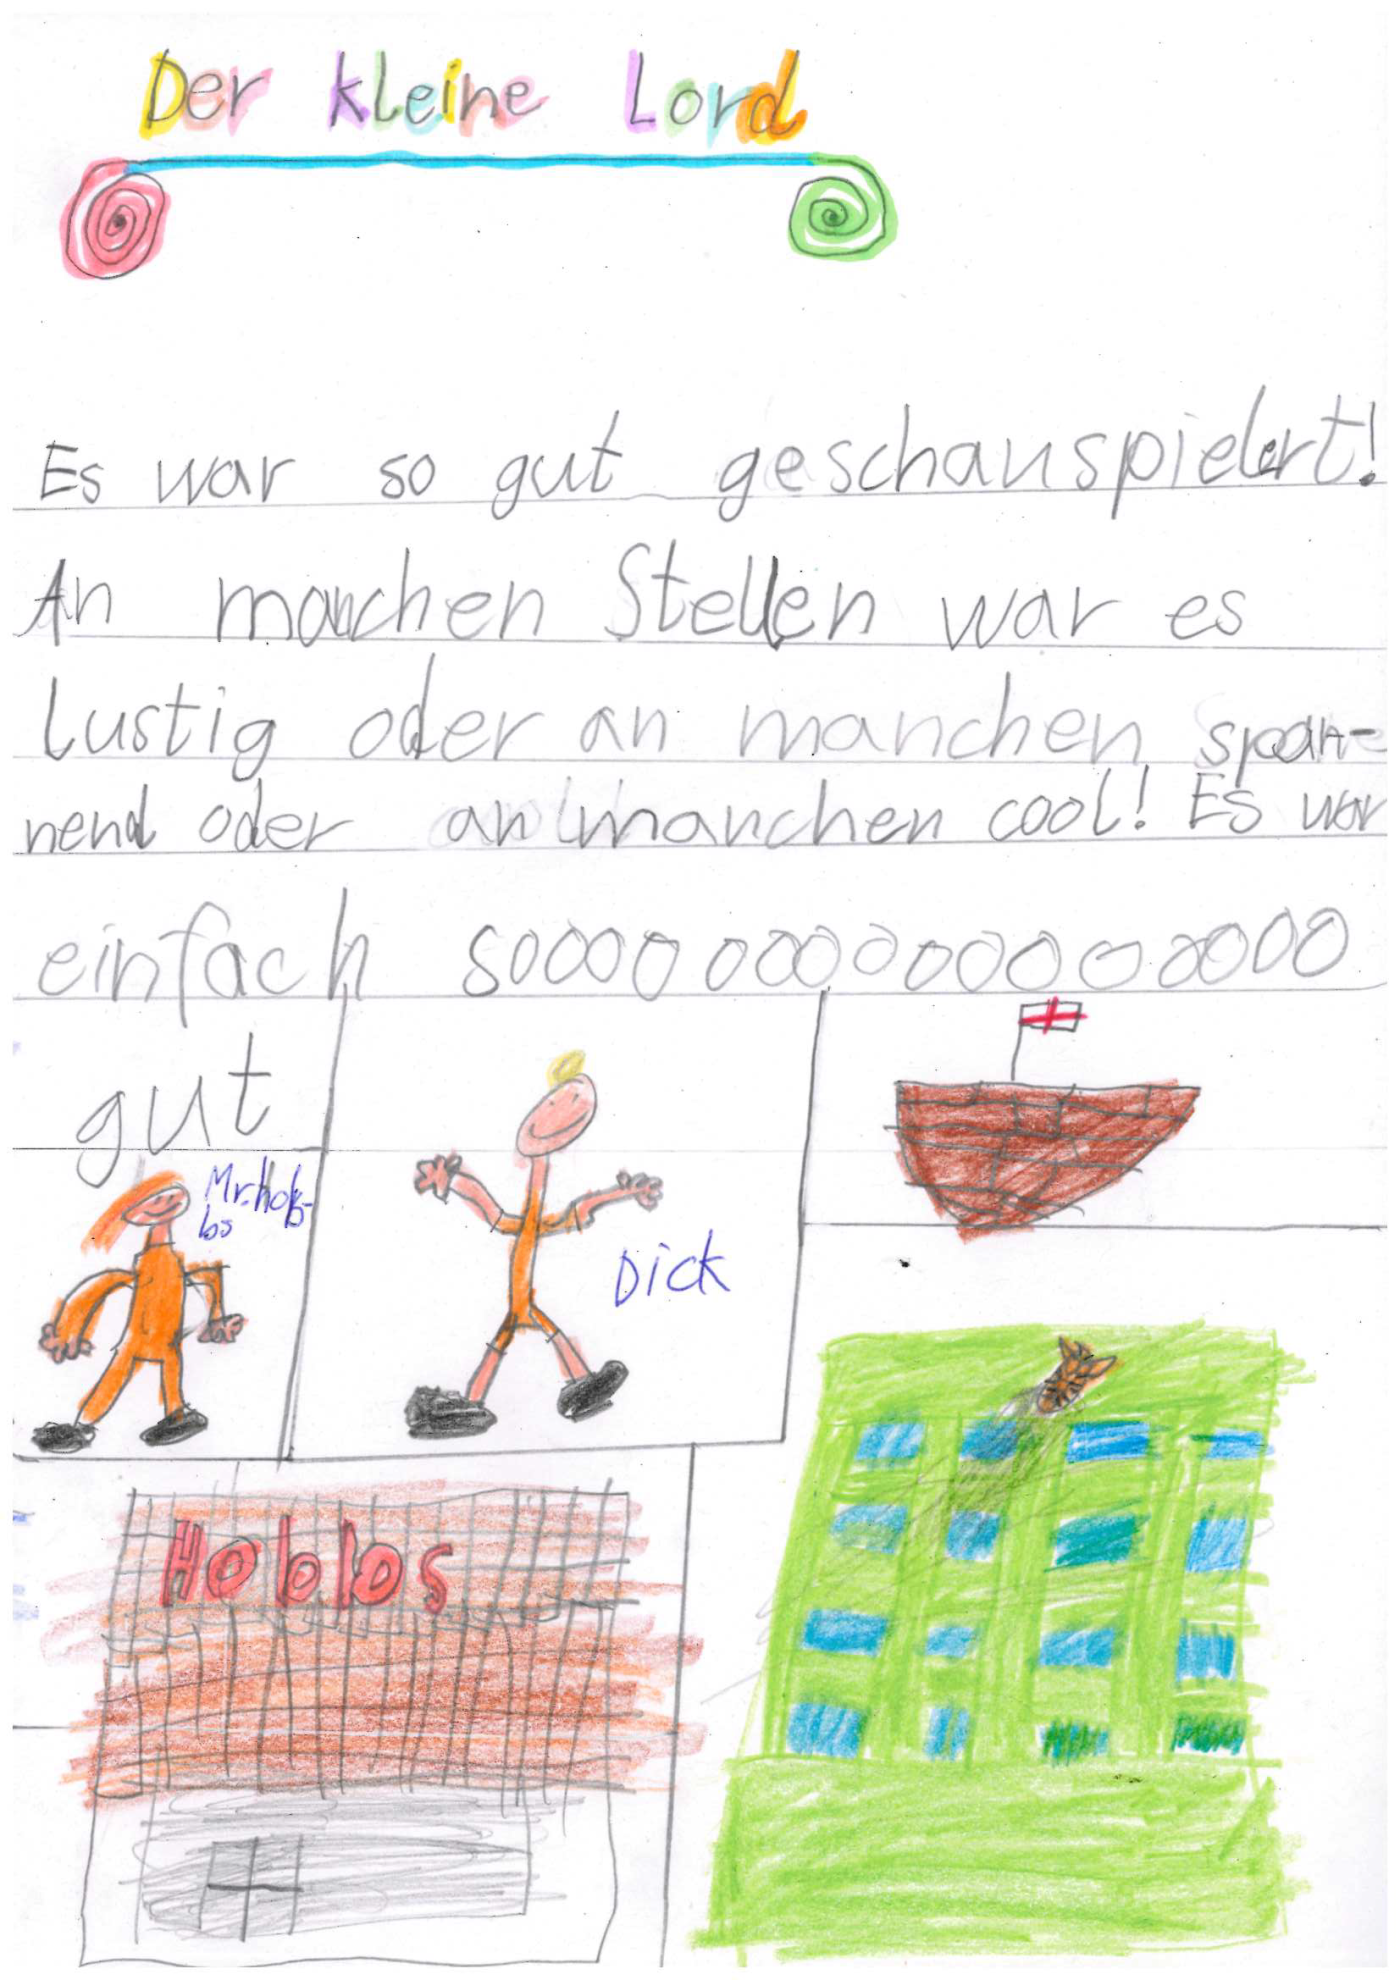 Der kleine Lord
Es war so gut geschauspielert!
An manchen Stellen war es
lustig oder an manchen span-
nend oder an manchen cool! Es war
einfach soooooooooooooooooo
gut
Mr. hob-
bs
Dick
Hobbs